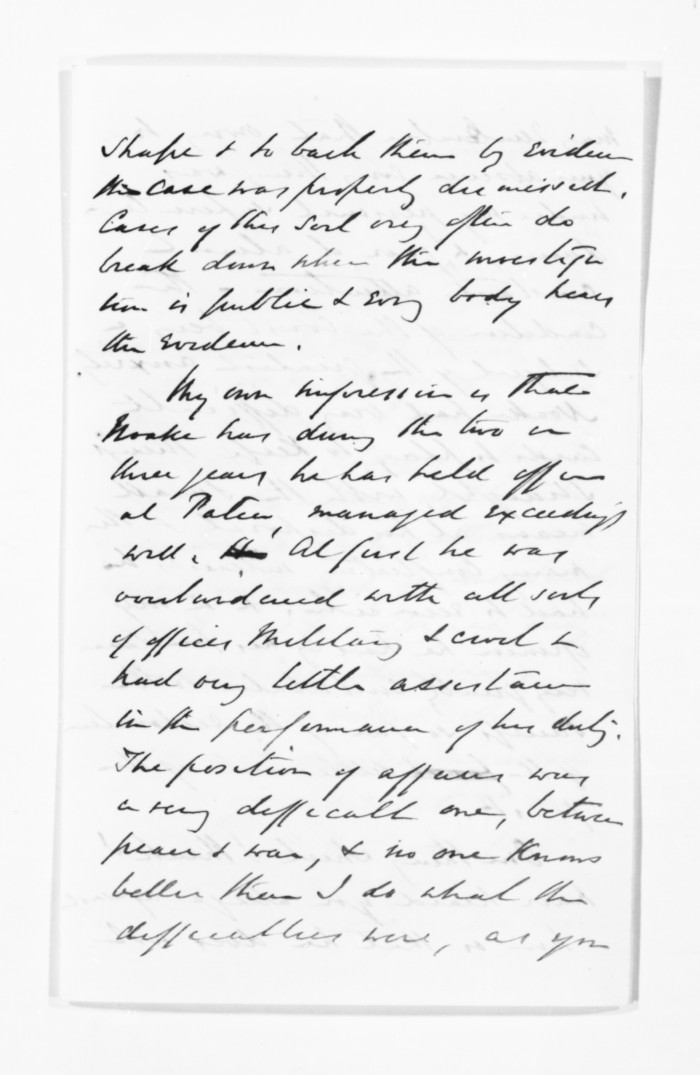 shape & to back them by Evidence
the case was properly dismissed.
Cases of this sort very often do
break down when the investiga
tion is public & Every body hears
the Evidence.
My own impression is that
Noake has during the two or
three years he has held office
at Patea, managed Exceedingly
well. At first he was
overburdened with all sorts
of offices Military & civil &
had very little assistance
in the performance of his duty.
The position of affairs was
a very difficult one, between
peace & war, & no one Knows
better than I do what the
difficulties were, as you